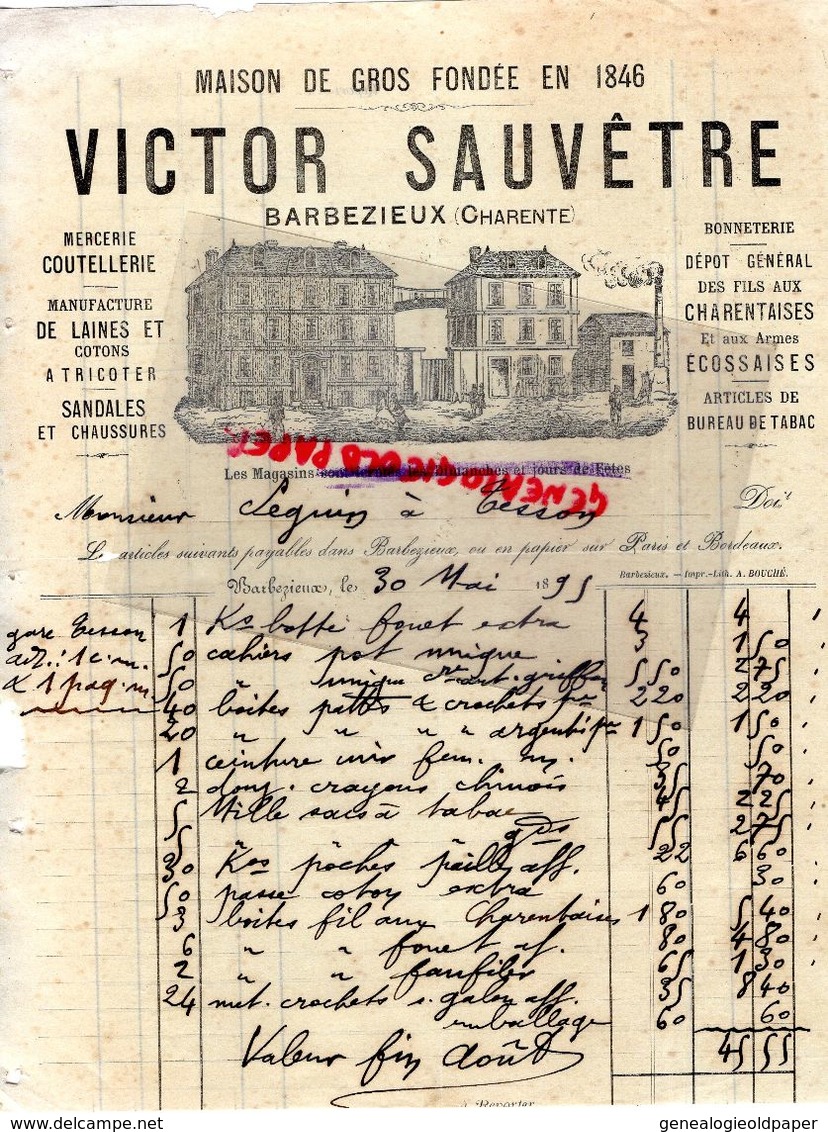 MAISON DE GROS FONDÉE EN 1846
VICTOR SAUVÊTRE
BARBEZIEUX (CHARENTE)
MERCERIE
COUTELLERIE
MANUFACTURE
DE LAINES ET
COTONS
A TRICOTER
SANDALES
ET CHAUSSURES
BONNETERIE
DÉPOT GÉNÉRAL
DES FILS AUX
CHARENTAISES
Et aux Armes
ÉCOSSAISES
ARTICLES DE
BUREAU DE TABAC
GENEALOGIE OLD PAPER
Les Magasins sont fermés les Dimanches et jours de Fêtes
Monsieur Seguin à Tesson Doit
Les articles suivants payables dans Barbezieux, ou en papier sur Paris et Bordeaux.
Barbezieux. — Impr.-Lith. A. BOUCHÉ.
Barbezieux, le 30 Mai 1895
gare Tesson
1 Ko botte fouet extra 4 4
50 cahiers pot unique 3 1 50
50 " unique griffon 5 50 2 75
40 boites pattes & crochets 2 20 2 20
20 " " " " argentés 1 50 1 50
1 ceinture fem. 50 50
2 douz. crayons chinois 35 70
5 Mille sacs à tabac 45 2 25
5 " gds 55 2 75
30 Kos poches paille aff. 22 6 60
50 passe coton extra 60 30
3 boites fil aux Charentaises 1 80 5 40
6 " " fouet af. 80 4 80
2 " " faufiler 65 1 30
24 met. crochets s. galon aff. 35 8 40
emballage 60 60
Valeur fin Août 45 55
à Reporter
genealogieoldpaper